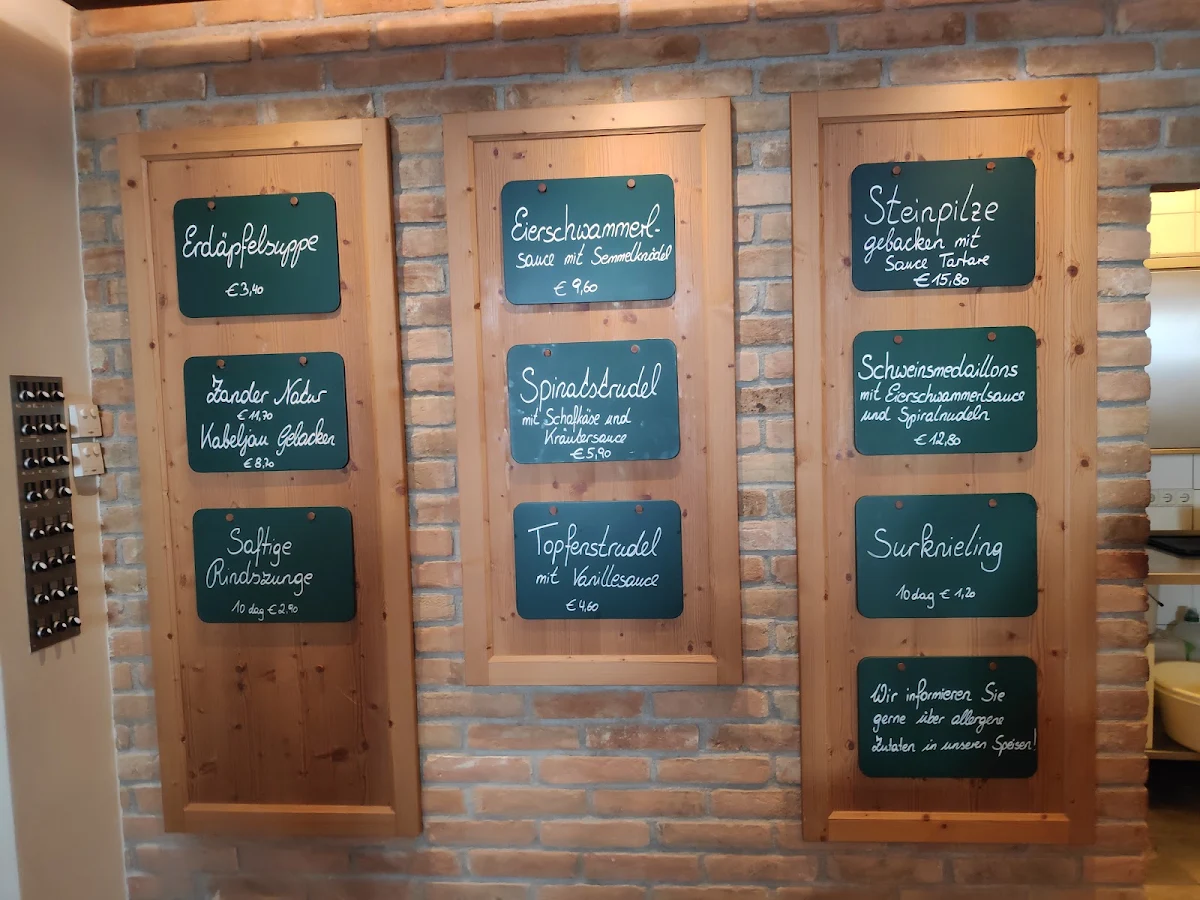 Erdäpfelsuppe
€ 3,40
Zander Natur
€ 11,70
Kabeljau Gebacken
€ 8,70
Saftige
Rindszunge
10 dag € 2,90
Eierschwammerl-
sauce mit Semmelknödel
€ 9,60
Spinatstrudel
mit Schafkäse und
Kräutersauce
€ 5,90
Topfenstrudel
mit Vanillesauce
€ 4,60
Steinpilze
gebacken mit
Sauce Tartare
€ 15,80
Schweinsmedaillons
mit Eierschwammerlsauce
und Spiralnudeln
€ 12,80
Surknieling
10 dag € 1,20
Wir informieren Sie
gerne über allergene
Zutaten in unseren Speisen!